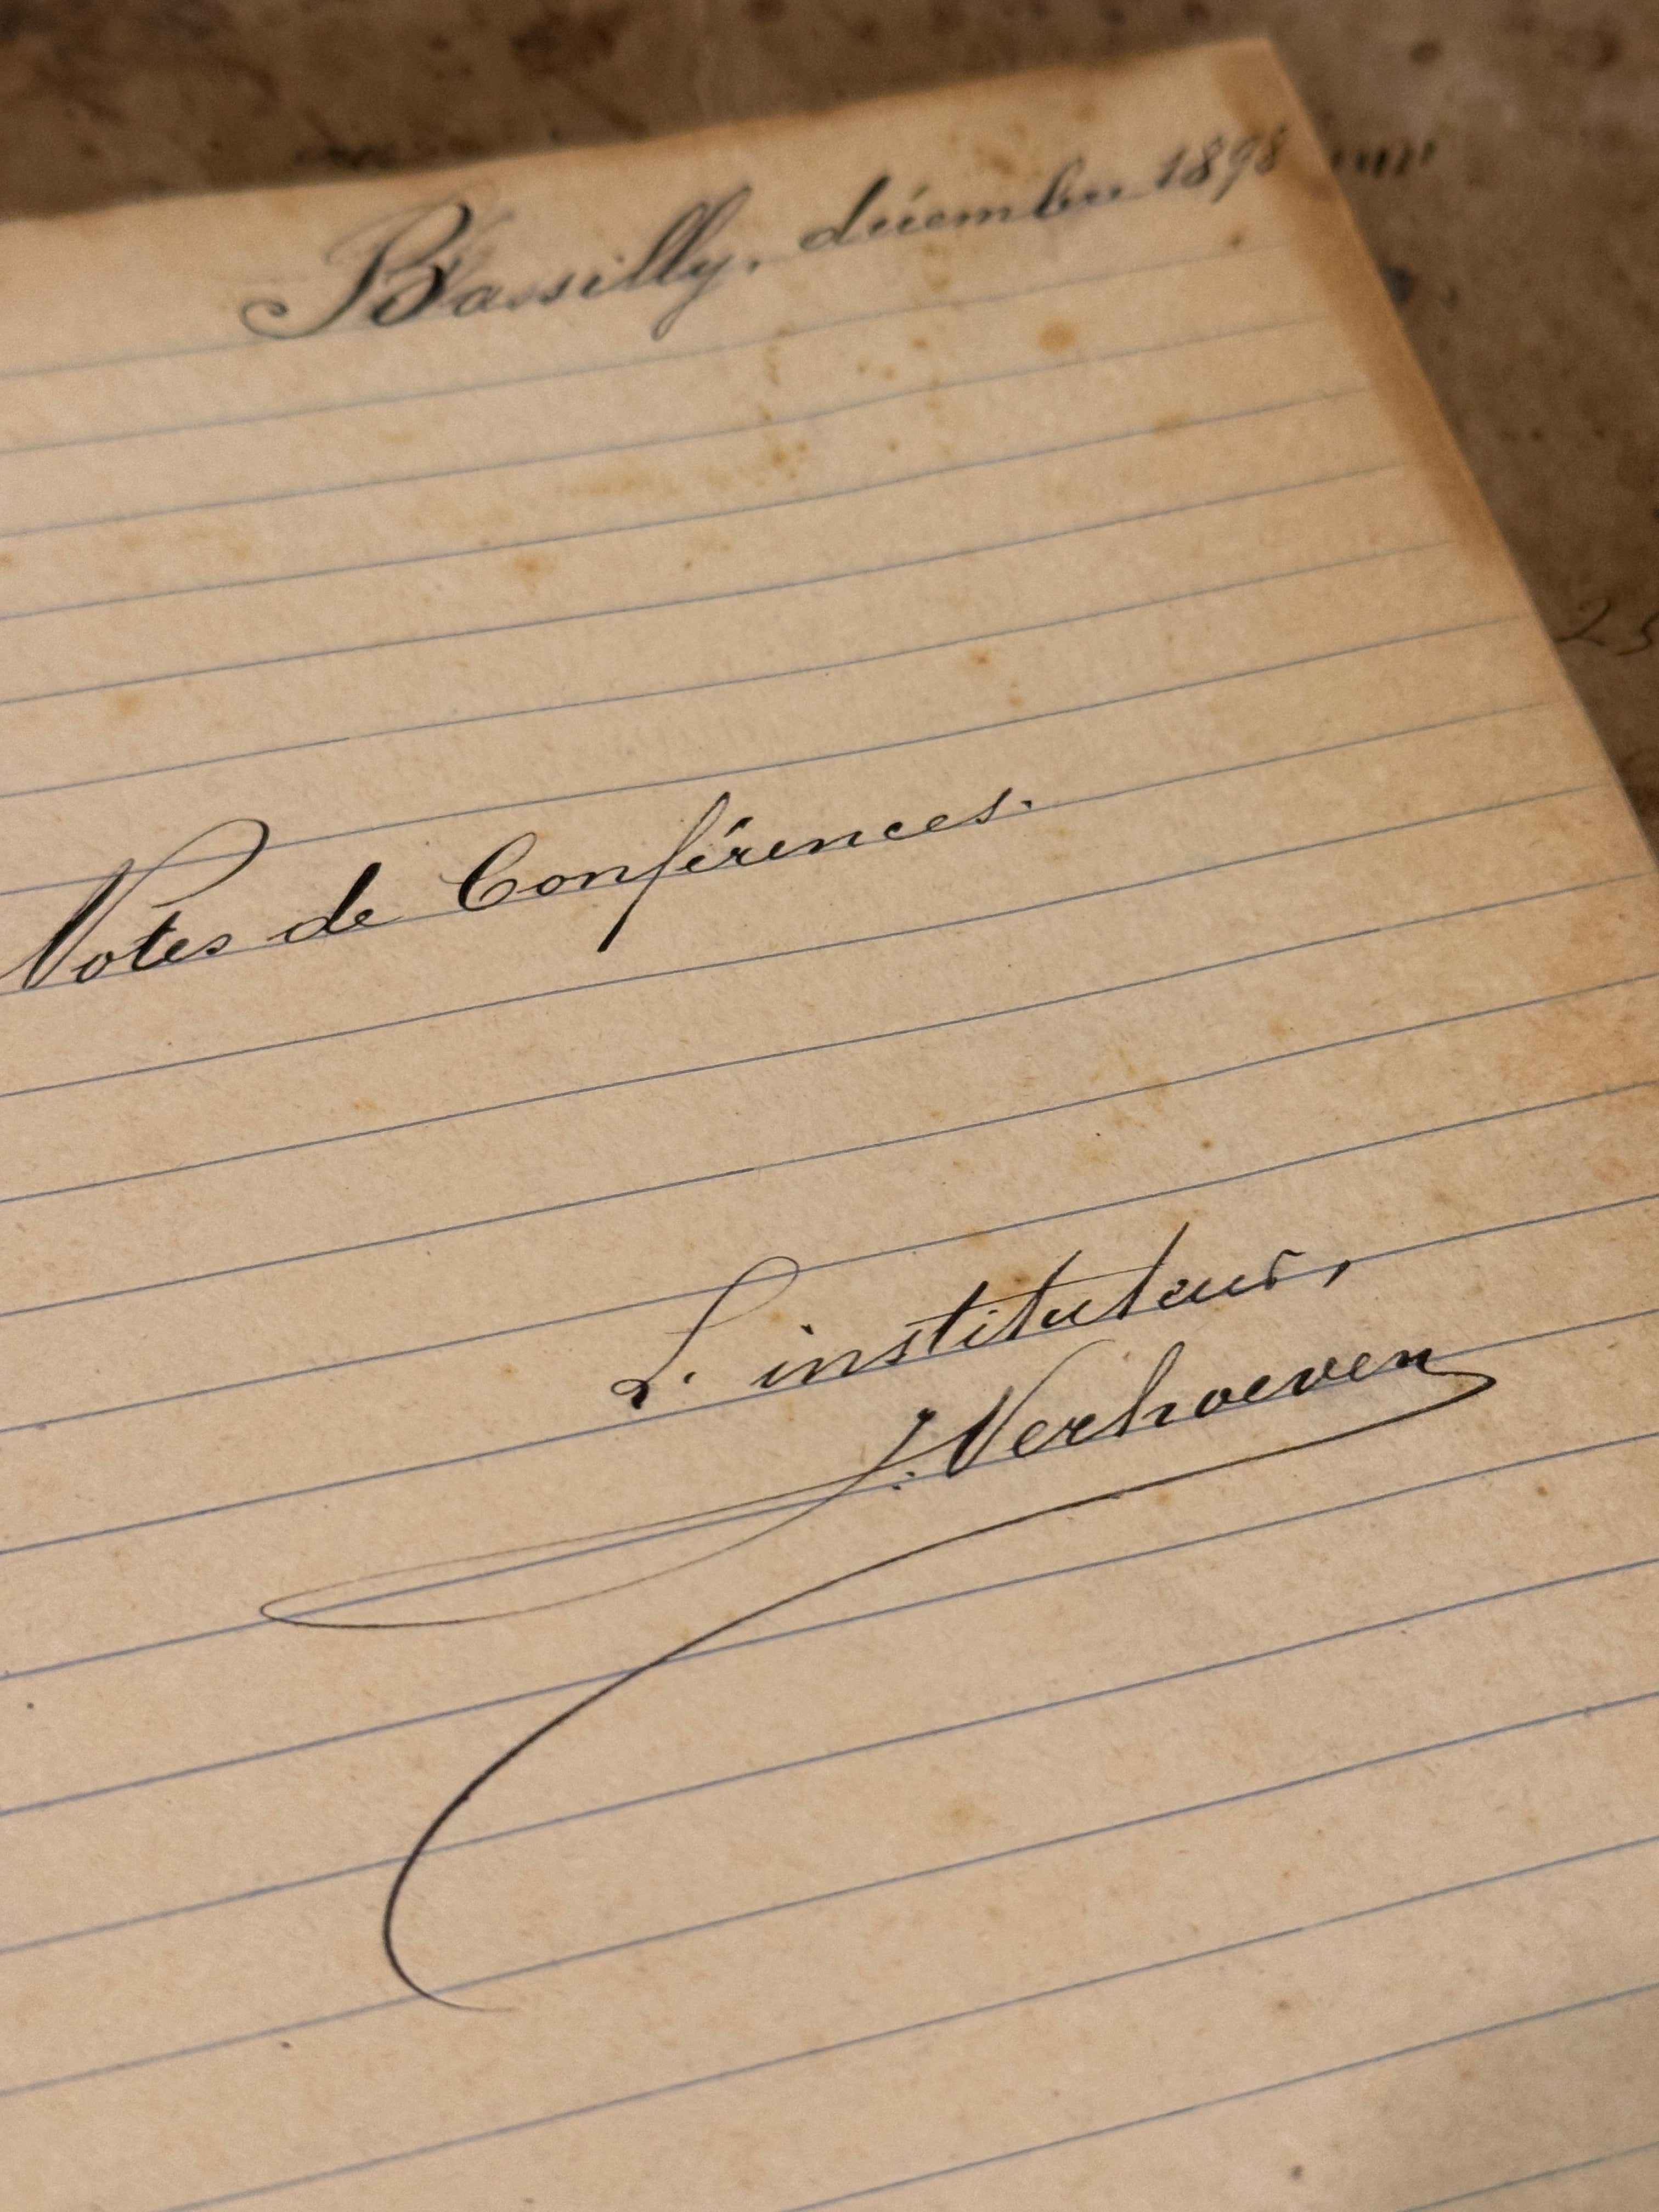 Bassilly, décembre 1898
Notes de Conférences.
L'instituteur,
J. Verhoeven
25